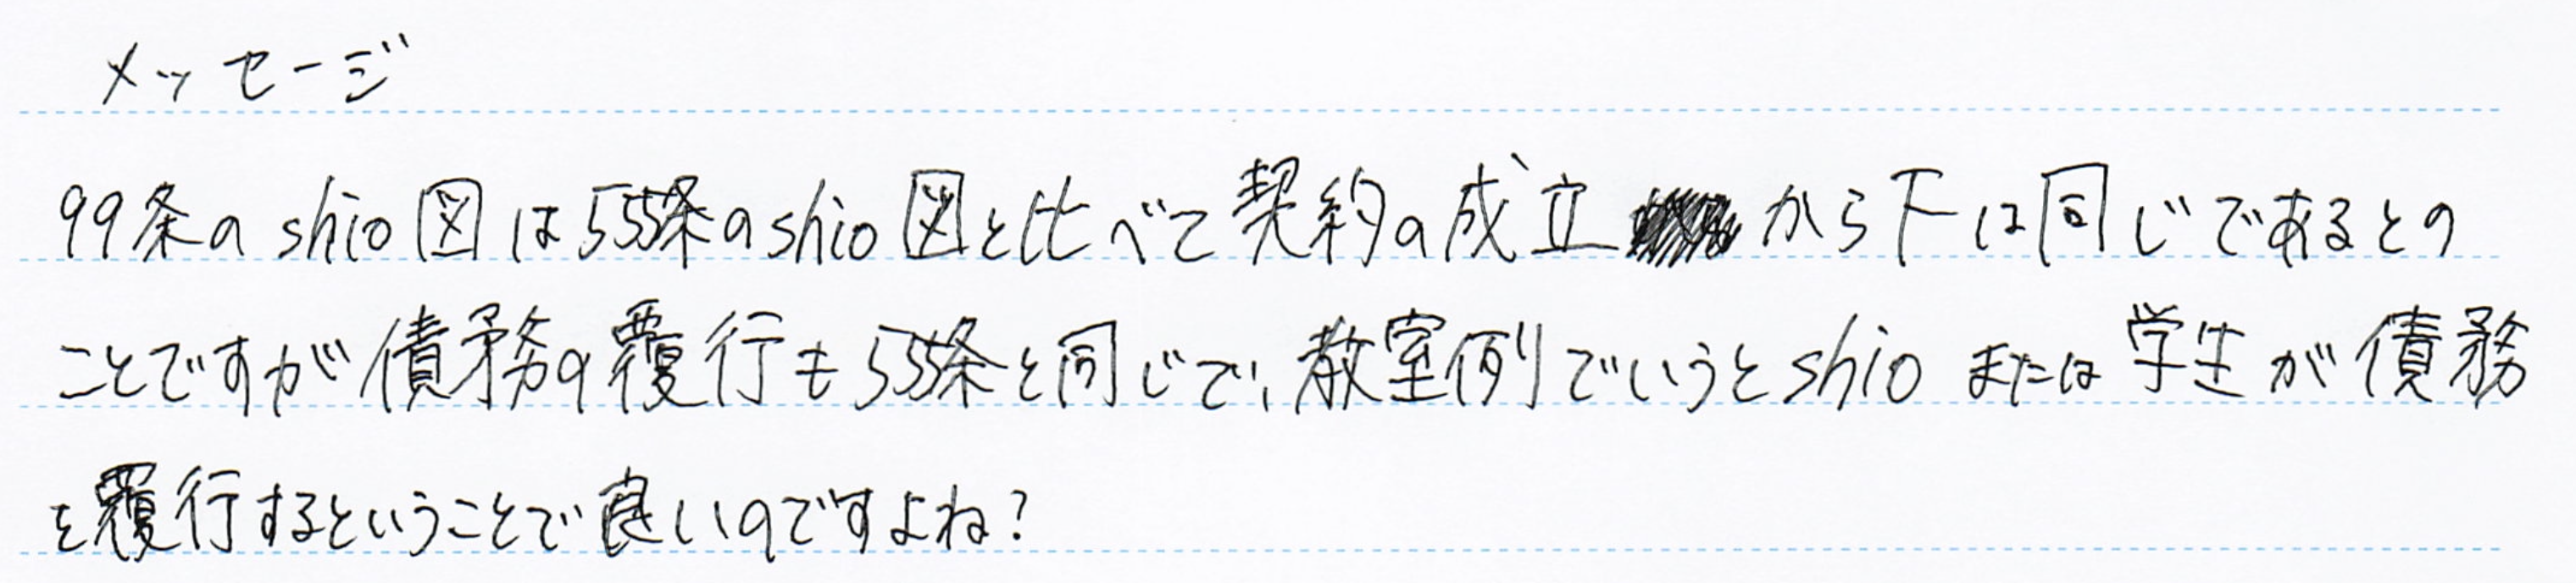 メッセージ
99条のshio図は555条のshio図と比べて契約の成立から下は同じであるとの
ことですが債務の覆行も555条と同じで、教室例でいうとshioまたは学生が債務
を覆行するということで良いのですよね?